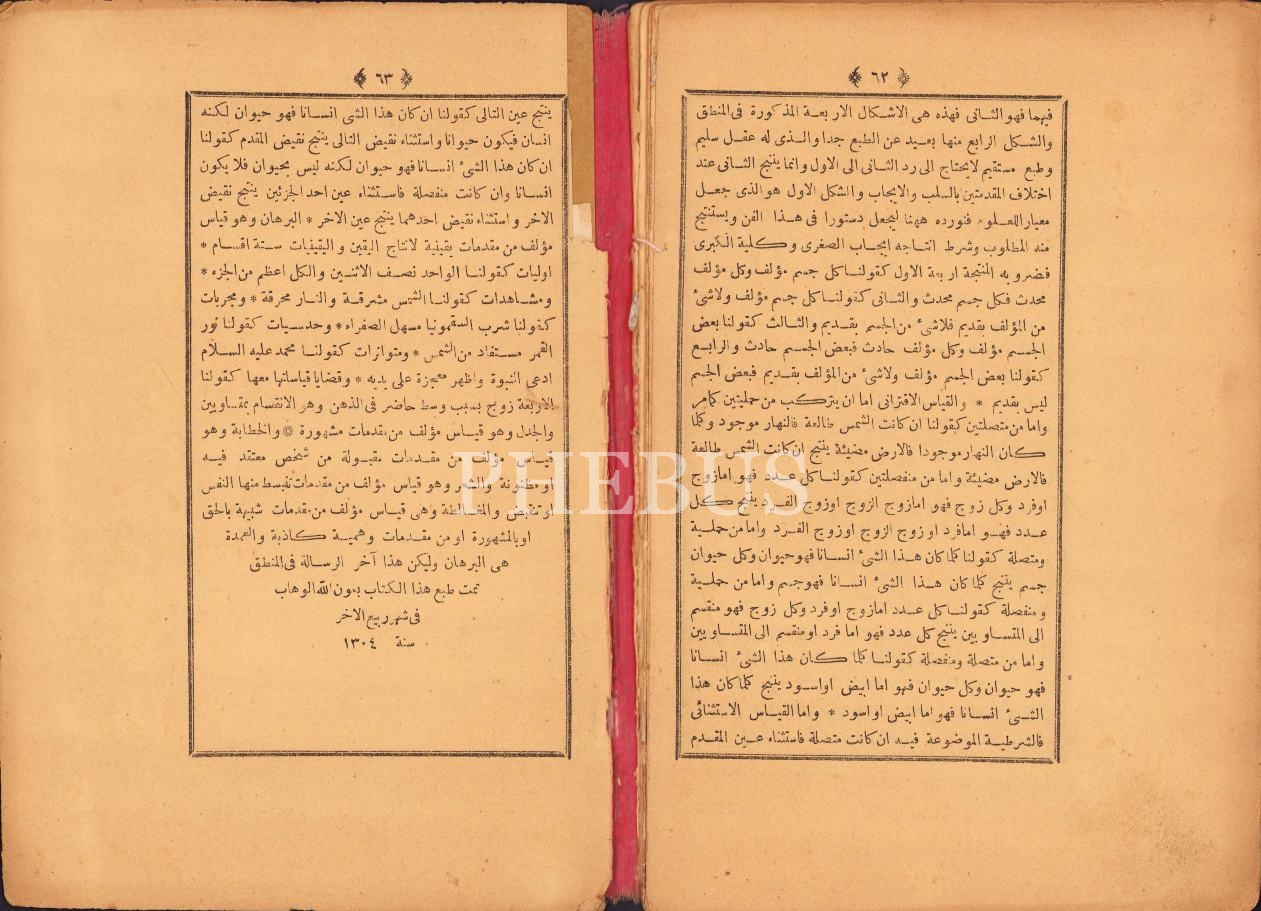 ٦٢
فيهما فهو الثانى فهذه هى الاشكال الاربعة المذكورة فى المنطق
والشكل الرابع منها بعيد عن الطبع جدا والذى له عقل سليم
وطبع مستقيم لايحتاج الى رد الثانى الى الاول وانما ينتج الثانى عند
اختلاف المقدمتين بالسلب والايجاب والشكل الاول هو الذى جعل
معيار اللعلوم فنورده ههنا ليجعل دستورا فى هذا الفن ويستنتج
منه المطلوب وشرط انتاجه ايجاب الصغرى وكلية الكبرى
فضروبه المنتجة اربعة الاول كقولنا كل جسم مؤلف وكل مؤلف
محدث فكل جسم محدث والثانى كقولنا كل جسم مؤلف ولاشئ
من المؤلف بقديم فلاشئ من الجسم بقديم والثالث كقولنا بعض
الجسم مؤلف وكل مؤلف حادث فبعض الجسم حادث والرابع
كقولنا بعض الجسم مؤلف ولاشئ من المؤلف بقديم فبعض الجسم
ليس بقديم * والقياس الاقترانى اما ان يتركب من حمليتين كمامر
واما من متصلتين كقولنا ان كانت الشمس طالعة فالنهار موجود وكلما
كان النهار موجودا فالارض مضيئة ينتج ان كانت الشمس طالعة
فالارض مضيئة واما من منفصلتين كقولنا كل عدد فهو امازوج
اوفرد وكل زوج فهو امازوج الزوج اوزوج الفرد ينتج كل
عدد فهو امافرد اوزوج الزوج اوزوج الفرد واما من حملية
ومتصلة كقولنا كلما كان هذا الشئ انسانا فهو حيوان وكل حيوان
جسم ينتج كلما كان هذا الشئ انسانا فهو جسم واما من حملية
ومنفصلة كقولنا كل عدد امازوج اوفرد وكل زوج فهو منقسم
الى المتساويين ينتج كل عدد فهو اما فرد او منقسم الى المتساويين
واما من متصلة ومنفصلة كقولنا كلما كان هذا الشئ انسانا
فهو حيوان وكل حيوان فهو اما ابيض اواسود ينتج كلما كان هذا
الشئ انسانا فهو اما ابيض او اسود * واما القياس الاستثنائى
فالشرطية الموضوعة فيه ان كانت متصلة فاستثناء عين المقدم
٦٣
ينتج عين التالى كقولنا ان كان هذا الشى انسانا فهو حيوان لكنه
انسان فيكون حيوانا واستثناء نقيض التالى ينتج نقيض المقدم كقولنا
ان كان هذا الشئ انسانا فهو حيوان لكنه ليس بحيوان فلا يكون
انسانا وان كانت منفصلة فاستثناء عين احد الجزئين ينتج نقيض
الاخر واستثناء نقيض احدهما ينتج عين الاخر * البرهان وهو قياس
مؤلف من مقدمات يقينية لانتاج اليقين واليقينيات ستة اقسام *
اوليات كقولنا الواحد نصف الاثنين والكل اعظم من الجزء *
ومشاهدات كقولنا الشمس مشرقة والنار محرقة * ومجربات
كقولنا شرب السقمونيا مسهل الصفراء * وحدسيات كقولنا نور
القمر مستفاد من الشمس * ومتواترات كقولنا محمد عليه السلام
ادعى النبوة واظهر معجزة على يديه * وقضايا قياساتها معها كقولنا
الاربعة زوج بسبب وسط حاضر فى الذهن وهو الانقسام بمتساويين
والجدل وهو قياس مؤلف من مقدمات مشهورة * والخطابة وهو
قياس مؤلف من مقدمات مقبولة من شخص معتقد فيه
او مظنونة والشعر وهو قياس مؤلف من مقدمات تنبسط منها النفس
او تنقبض والمغالطة وهى قياس مؤلف من مقدمات شبيهة بالحق
او بالمشهورة او من مقدمات وهمية كاذبة والعمدة
هى البرهان وليكن هذا آخر الرسالة فى المنطق
تمت طبع هذا الكتاب بعون الله الوهاب
فى شهر ربيع الاخر
سنة ١٣٠٤
PHEBUS